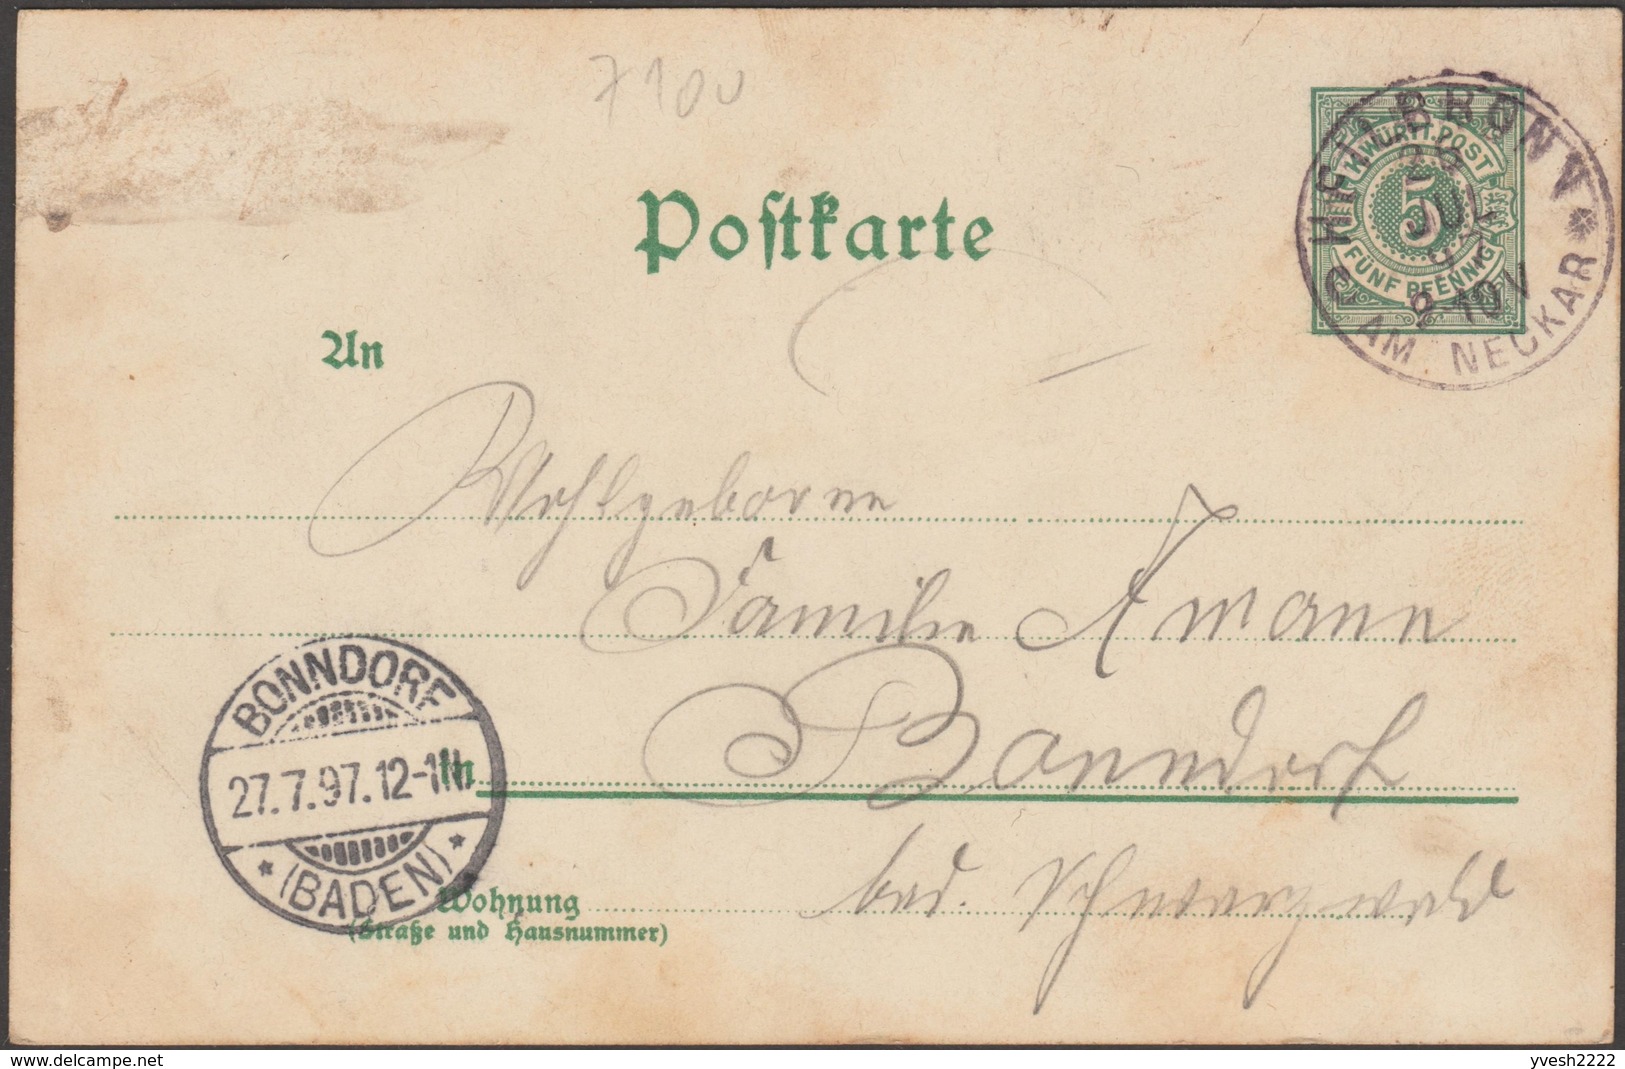 7100
Postkarte
HEILBRONN
AM NECKAR
26
JUL
97
9-10V
K.WÜRTT.POST
5
FÜNF PFENNIG
An
Wohlgeborne
Familie Amann
BONNDORF
27.7.97.12-1N.
(BADEN)
In
Bonndorf
bad. Schwarzwald
Wohnung
(Straße und Hausnummer)
www.delcampe.net
yvesh2222